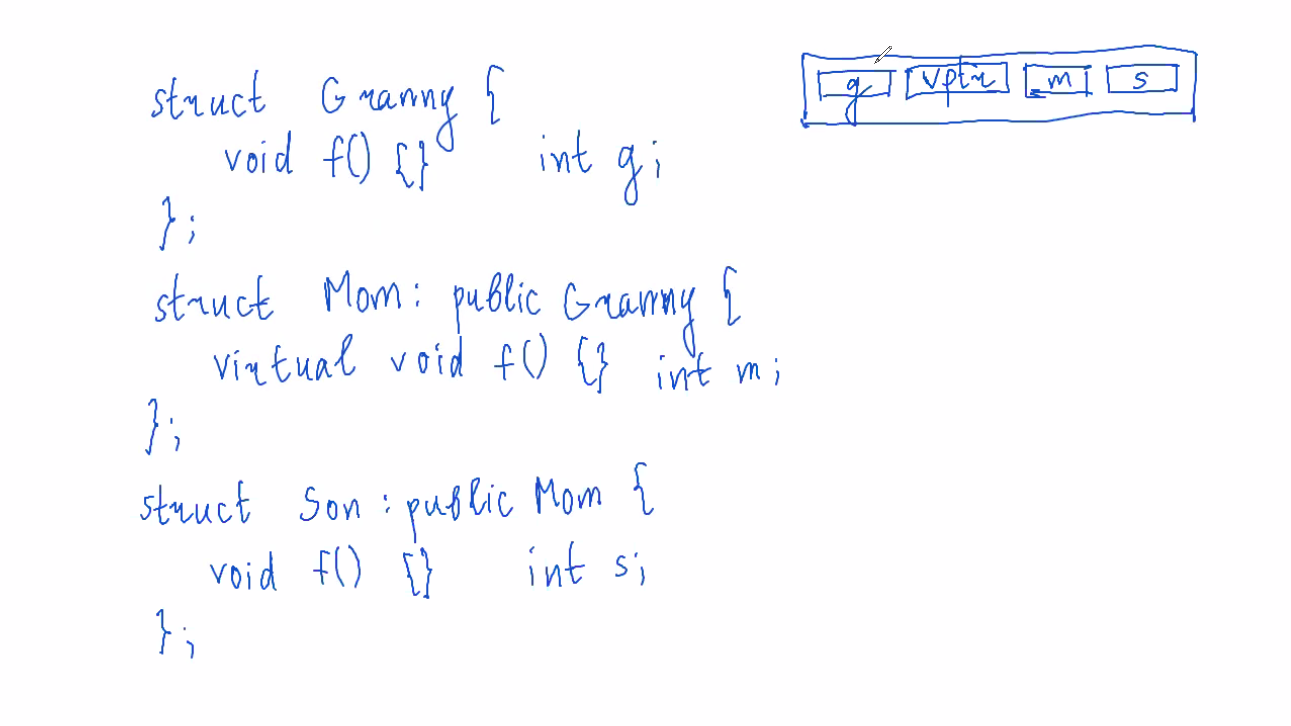 struct Granny {
g vptr m s
void f() {} int g;
};
struct Mom: public Granny {
virtual void f() {} int m;
};
struct Son: public Mom {
void f() {} int s;
};